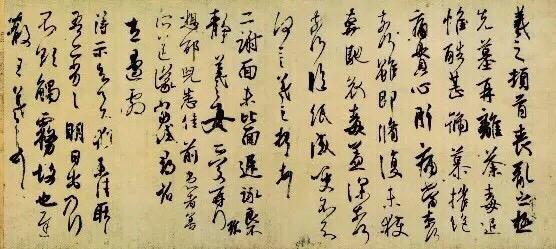 羲之頓首喪亂之極
先墓再離荼毒追
惟酷甚號慕摧絕
痛貫心肝痛當奈何
奈何雖即脩復未獲
奔馳哀毒益深奈何
奈何臨紙感哽不知
何言羲之頓首頓首
二謝面未比面遲詠良
不靜羲之女愛再拜
想邵兒悉佳前患者善
所送議當試尋省
左邊劇
得示知足下猶未佳耿
耿吾亦劣劣明日出乃行
不欲觸霧故也遲
散王羲之頓首